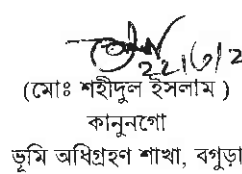 22/6/2
(মোঃ শহীদুল ইসলাম )
কানুনগো
ভূমি অধিগ্রহণ শাখা, বগুড়া